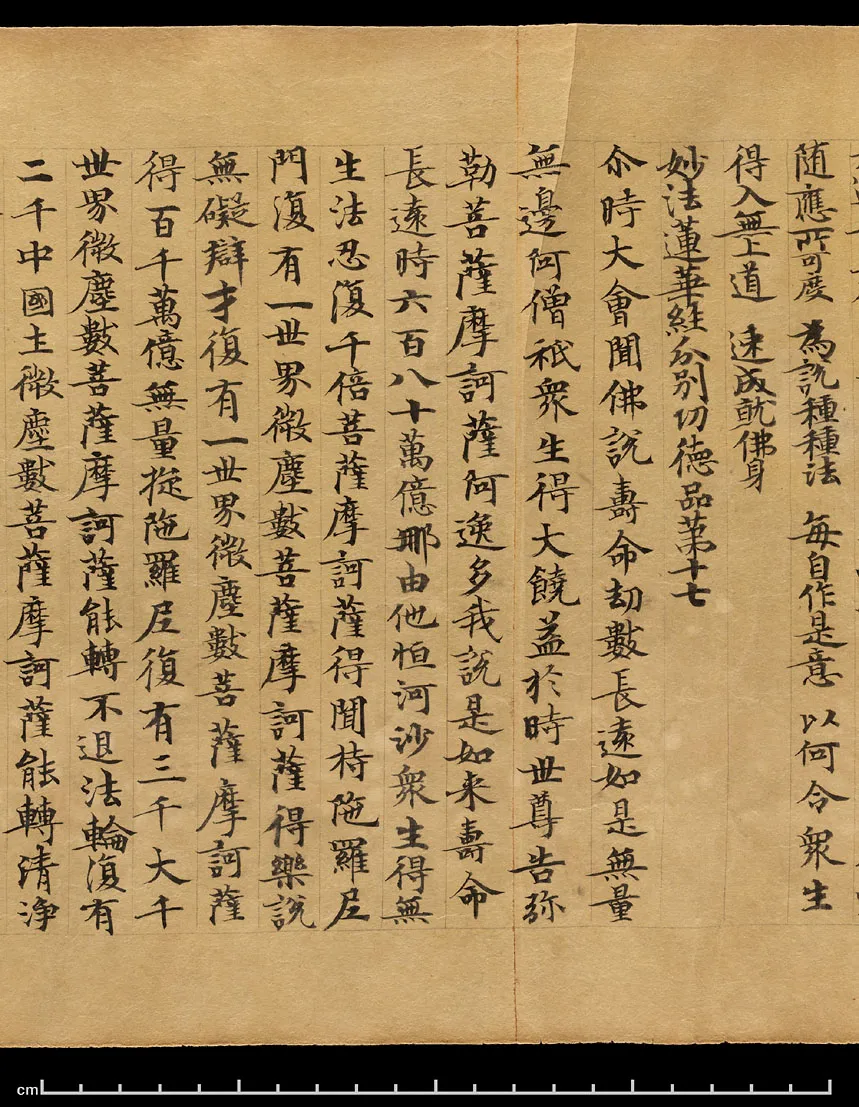 随應所可度　為說種種法　每自作是意　以何令衆生
得入無上道　速成就佛身
妙法蓮華經分別功德品第十七
尒時大會聞佛說壽命劫數長遠如是無量
無邊阿僧祇衆生得大饒益於時世尊告弥
勒菩薩摩訶薩阿逸多我說是如来壽命
長遠時六百八十萬億那由他恒河沙衆生得無
生法忍復千倍菩薩摩訶薩得聞持陁羅尼
門復有一世界微塵數菩薩摩訶薩得樂說
無礙辯才復有一世界微塵數菩薩摩訶薩
得百千萬億無量旋陁羅尼復有三千大千
世界微塵數菩薩摩訶薩能轉不退法輪復有
二千中國土微塵數菩薩摩訶薩能轉清淨
cm